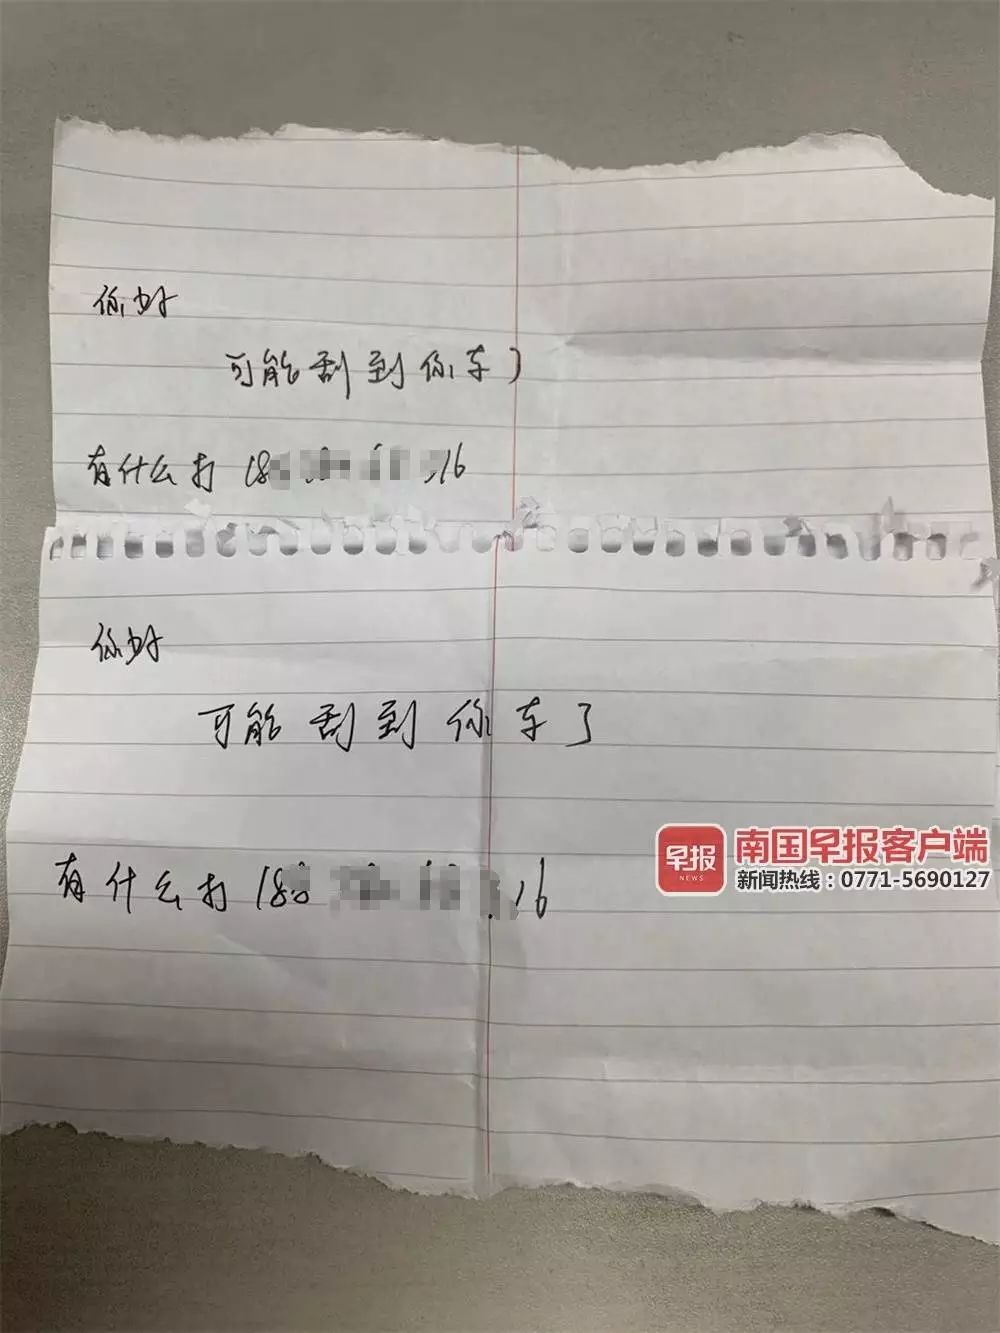 你好
可能刮到你车了
有什么打 18 16
你好
可能刮到你车了
有什么打 188 16
早报
NEWS
南国早报客户端
新闻热线：0771-5690127